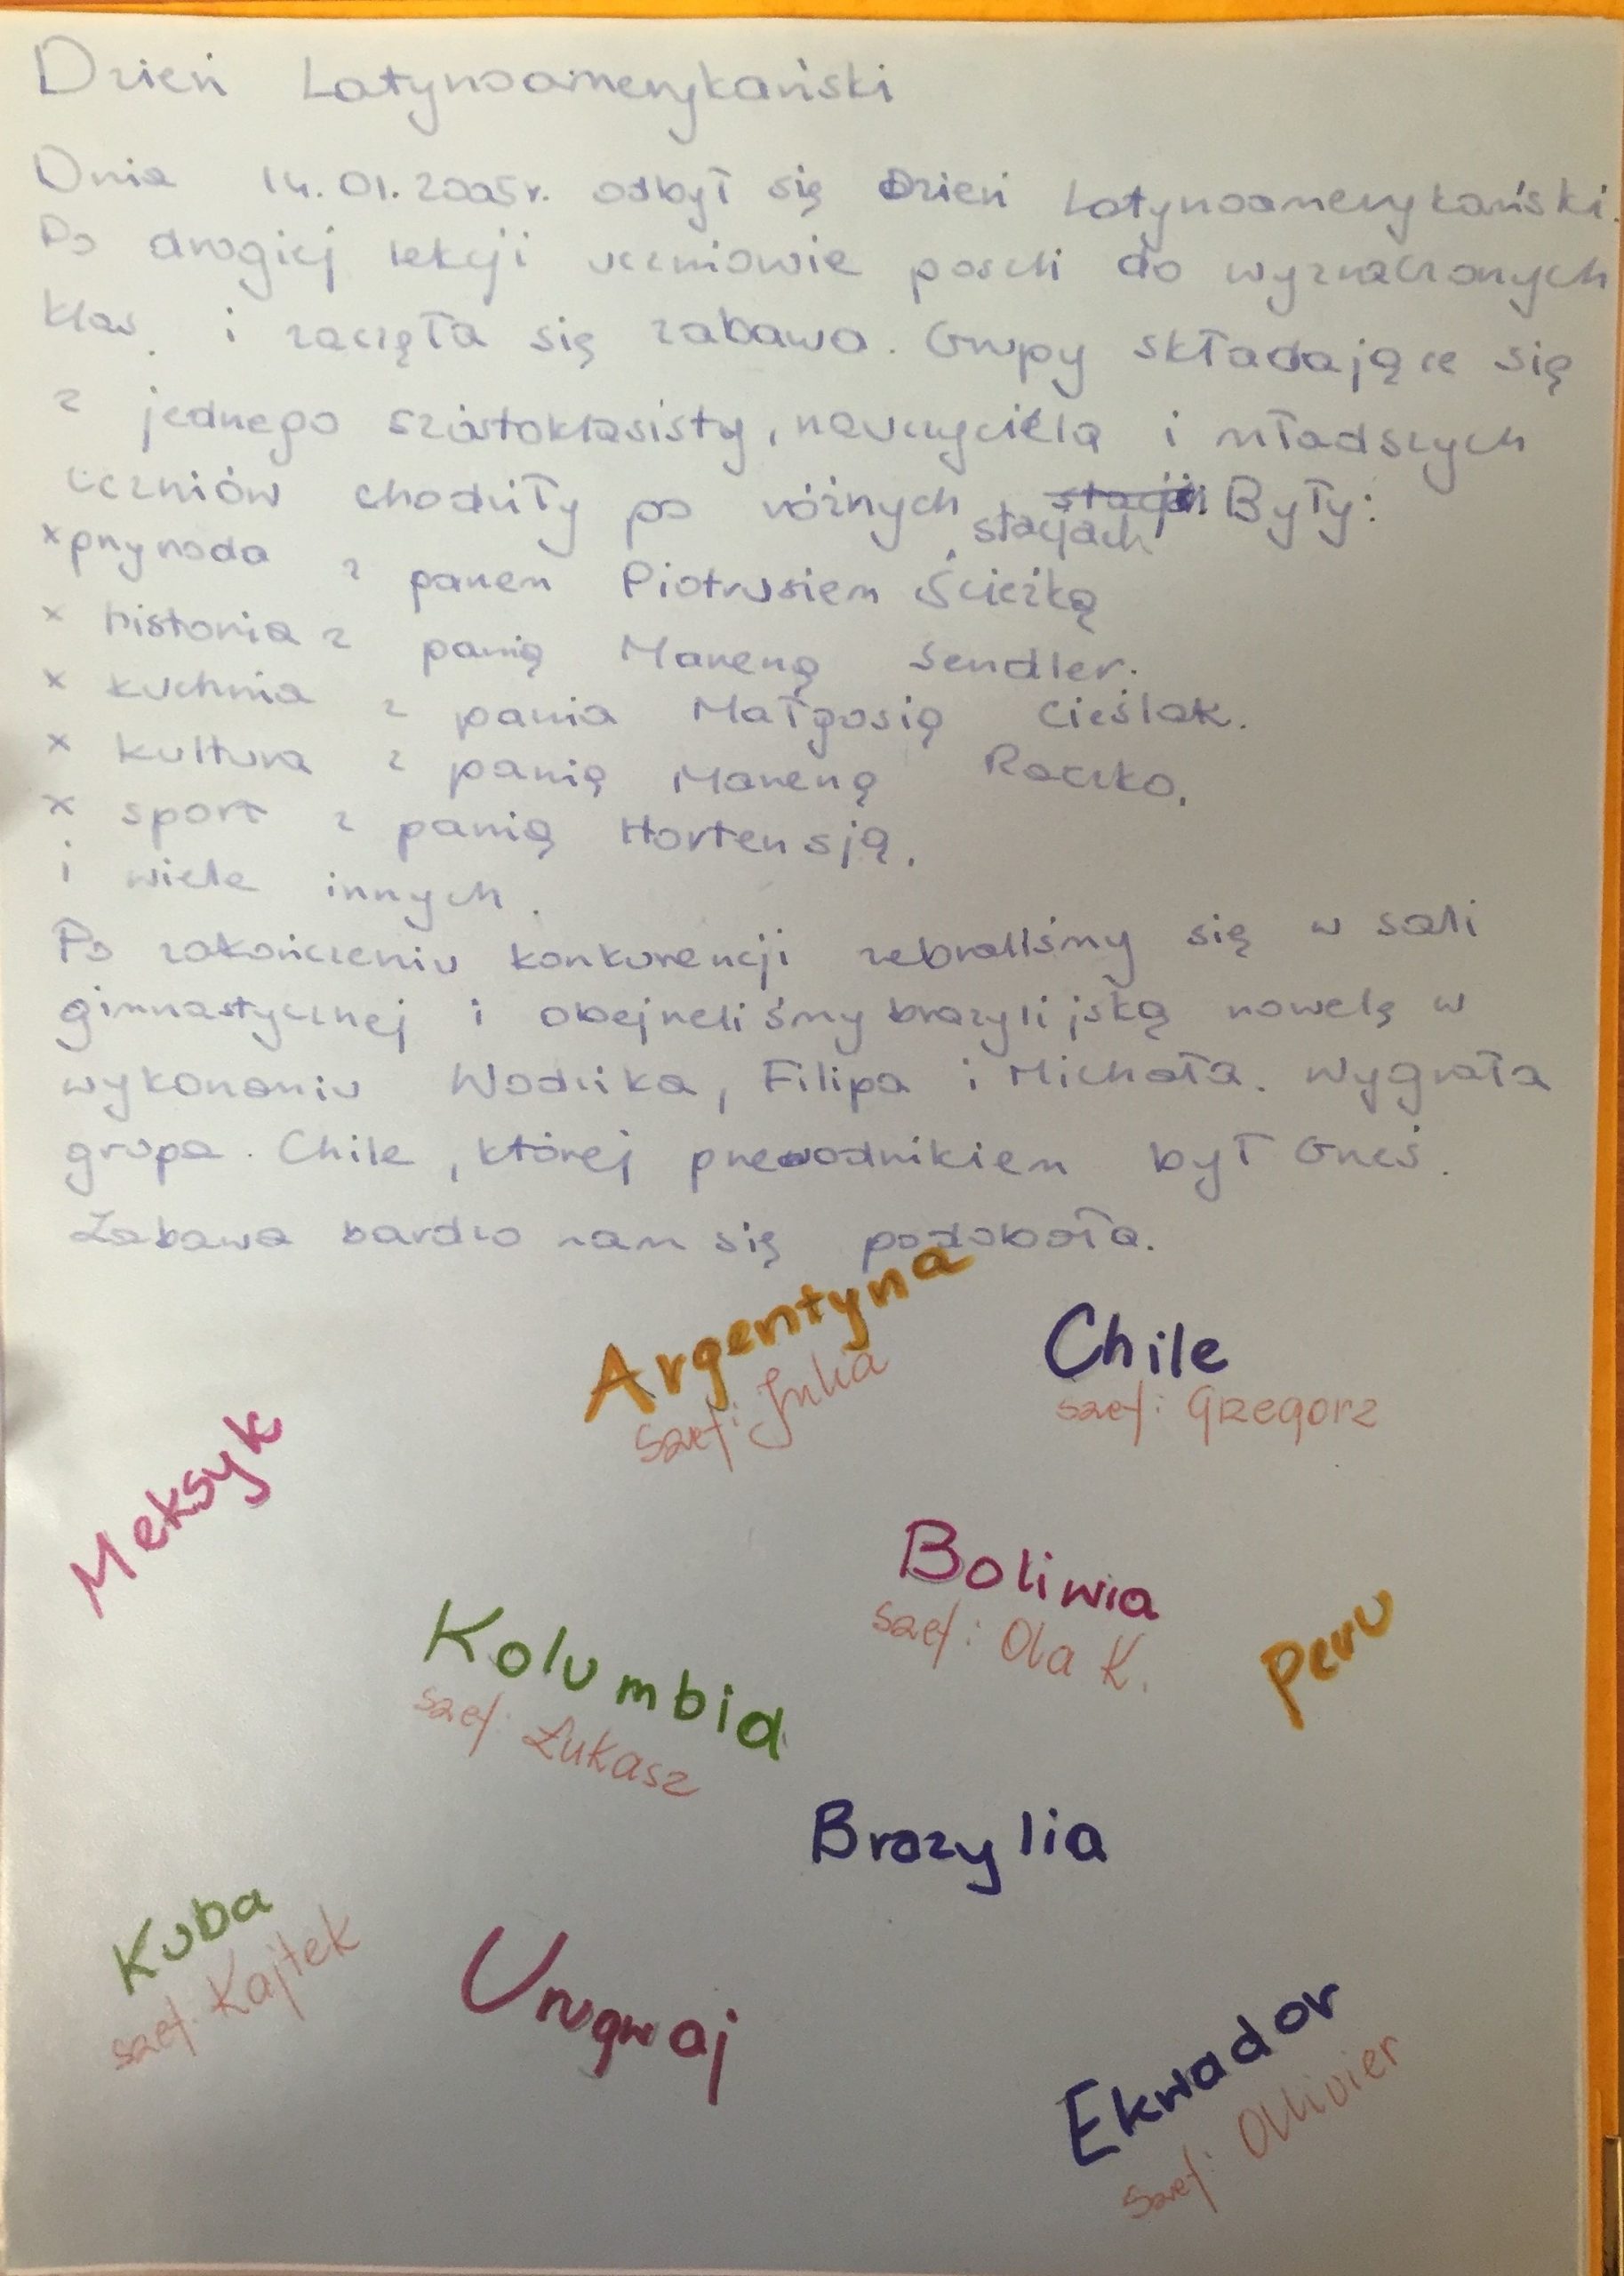 Dzień Latynoamerykański
Dnia 14.01.2005r. odbył się Dzień Latynoamerykański.
Po drogiej lekcji uczniowie poszli do wyznaczonych
klas. i zaczęła się zabawa. Grupy składające się
z jednego szóstoklasisty, nauczyciela i młodszych
uczniów chodziły po różnych stacjach Były:
x przyroda z panem Piotrusiem Ścieżką
x historia z panią Marzeną Sendler.
x kuchnia z pania Małgosią Cieślak.
x kultura z panią Marzeną Raczko.
x sport z panią Hortensją.
i wiele innych.
Po zakończeniu konkurencji zebraliśmy się w sali
gimnastycznej i obejrzeliśmy brazylijską nowelę w
wykonaniu Wodzika, Filipa i Michała. Wygrała
grupa. Chile, której przewodnikiem był Grześ.
Zabawa bardzo nam się podobała.
Argentyna
szef: Julia
Chile
szef: Grzegorz
Meksyk
Boliwia
szef: Ola K.
Peru
Kolumbia
szef: Łukasz
Brazylia
Kuba
szef: Kajtek
Urugwaj
Ekwador
szef: Ollivier